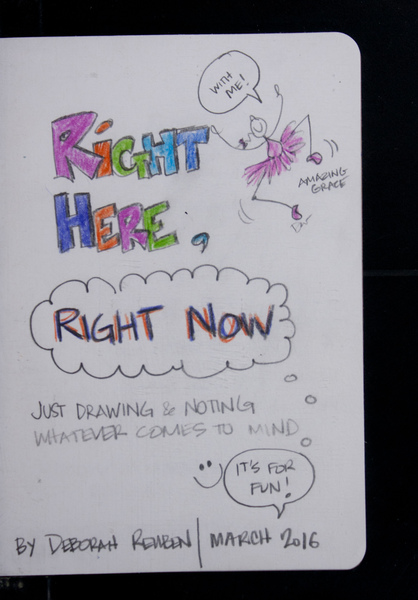 WITH
ME!
RIGHT
HERE,
AMAZING
GRACE
RIGHT NOW
JUST DRAWING & NOTING
WHATEVER COMES TO MIND
IT'S FOR
FUN!
BY DEBORAH REUBEN | MARCH 2016